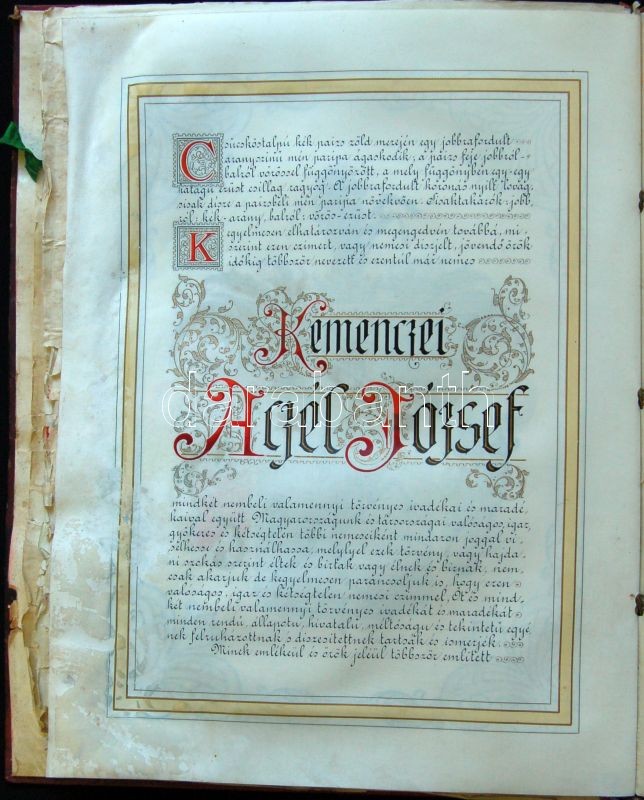 Csücsköstalpú kék paizs zöld mezején egy jobbrafordult
aranyszinü mén paripa ágaskodik, a paizs feje jobbról-
balról vörössel függönyözött, a mely függönyben egy-egy
hatágú ezüst csillag ragyog. A jobbrafordult koronás nyilt lovag-
sisak disze a paizsbeli mén paripa növekvően. Sisaktakarók: jobb-
ról: kék-arany, balról: vörös-ezüst.
Kegyelmesen elhatározván és megengedvén továbbá, mi-
szerint ezen czimert, vagy nemesi diszjelt, jövendő örök
időkig többször nevezett és ezentúl már nemes
Kemenczei
Aczél József
mindkét nembeli valamennyi törvényes ivadékai és maradé-
kaival együtt Magyarországunk és társországai valóságos, igaz,
gyökeres és kétségtelen többi nemeseiként mindazon joggal vi-
selhesse és használhassa, melylyel ezek törvény, vagy hajda-
ni szokás szerint éltek és birtak vagy élnek és birnak, nem-
csak akarjuk de kegyelmesen parancsoljuk is, hogy ezen
valóságos, igaz és kétségtelen nemesi czimmel, Őt és mind-
két nembeli valamennyi törvényes ivadékát és maradékát
minden rendű, állapotu, hivatalu, méltóságu és tekintetü egyé-
nek felruházottnak s diszesitettnek tartsák és ismerjék.
Minek emlékeül és örök jeleül többször emlitett
darabanth